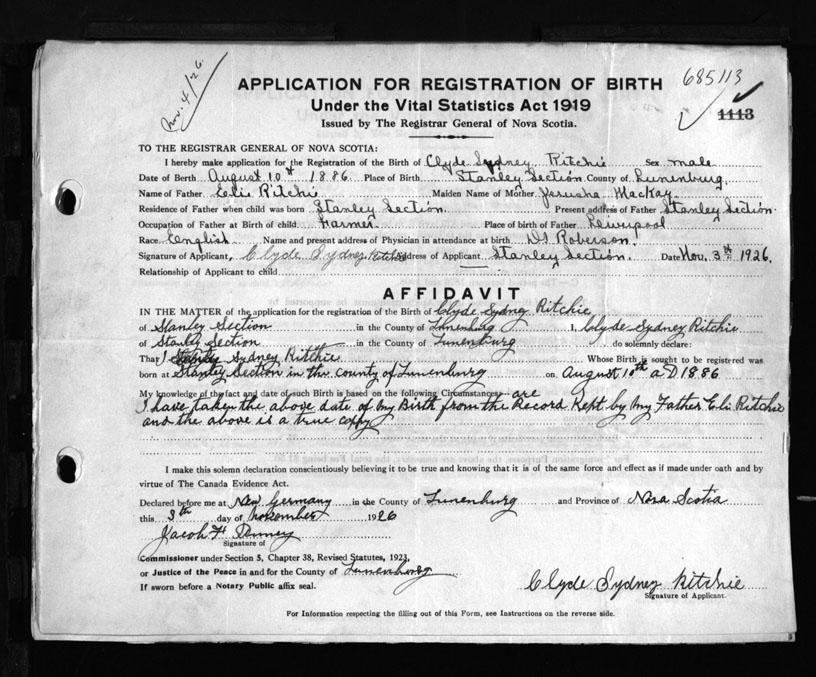 Nov. 4/26.
685113
APPLICATION FOR REGISTRATION OF BIRTH
Under the Vital Statistics Act 1919
1113
Issued by The Registrar General of Nova Scotia.
TO THE REGISTRAR GENERAL OF NOVA SCOTIA:
I hereby make application for the Registration of the Birth of Clyde Sydney Ritchie Sex male
Date of Berth August 10th 1886 Place of Birth Stanley Section County of Lunenburg
Name of Father Eli Ritchie Maiden Name of Mother Jerusha MacKay
Residence of Father when child was born Stanley Section Present address of Father Stanley Section
Occupation of Father at Birth of child Farmer Place of birth of Father Liverpool
Race English Name and present address of Physician in attendance at birth Roberson
Signature of Applicant, Clyde Sydney Ritchie Address of Applicant Stanley Section. Date Nov. 3th 1926.
Relationship of Applicant to child
AFFIDAVIT
IN THE MATTER of the application for the registration of the Birth of Clyde Sydney Ritchie
of Stanley Section in the County of Lunenburg I, Clyde Sydney Ritchie
of Stanley Section in the County of Lunenburg do solemnly declare:
That I Sydney Ritchie Whose Birth is sought to be registered was
born at Stanley Section in the county of Lunenburg on August 10th a D 1886
My knowledge of the fact and date of such Birth is based on the following Circumstances: are
I have taken the above date of My Birth from the Record Kept by My Father Eli Ritchie
and the above is a true copy
I make this solemn declaration conscientiously believing it to be true and knowing that it is of the same force and effect as if made under oath and by
virtue of The Canada Evidence Act.
Declared before me at New Germany in the County of Lunenburg and Province of Nova Scotia
this 3th day of November 1926
Jacob H
Signature of
Commissioner under Section 5, Chapter 38, Revised Statutes, 1923,
or Justice of the Peace in and for the County of Lunenburg
If sworn before a Notary Public affix seal.
Clyde Sydney Ritchie
Signature of Applicant.
For Information respecting the filling out of this Form, see Instructions on the reverse side.